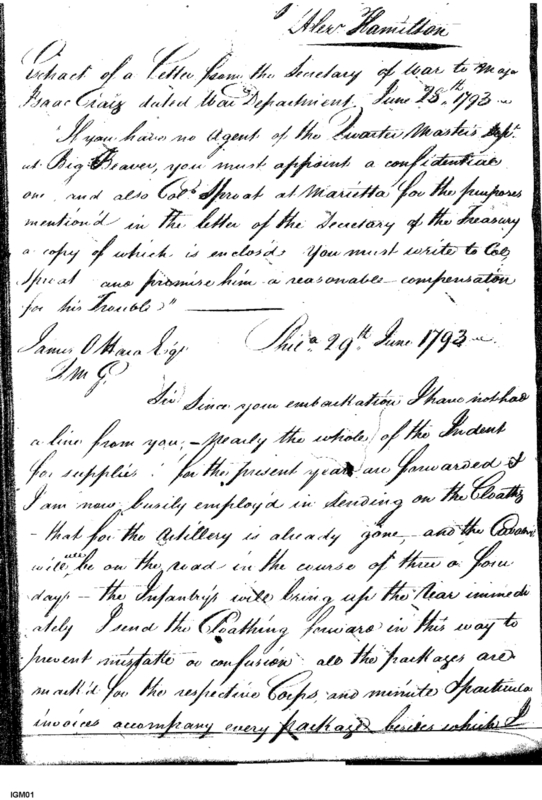 Alexr Hamilton
Extract of a Letter from the Secretary of War to Majr
Isaac Craig dated War Department June 25th 1793
"If you have no Agent of the Quarter Masters Dept
at Big Beaver, you must appoint a confidential
one, and also Colo Sproat at Marietta for the purposes
mention'd in the letter of the Secretary of the Treasury
a copy of which is enclos'd You must write to Col
Sproat and promise him a reasonable compensation
for his Trouble"
James OHara Esqr Phila 29th June 1793
QMG
Sir Since your embarkation I have not had
a line from you, - nearly the whole of the Indent
for supplies for the present year are forwarded &
I am now busily employ'd in sending on the Cloathg
- that for the Artillery is already gone, and the
will be on the road in the course of three or four
days - the Infantry's will bring up the rear immedi
ately I send the Cloathing forward in this way to
prevent mistake or confusion all the packages are
mark'd for the respective Corps, and minute & particular
invoices accompany every package besides which I
IGM01